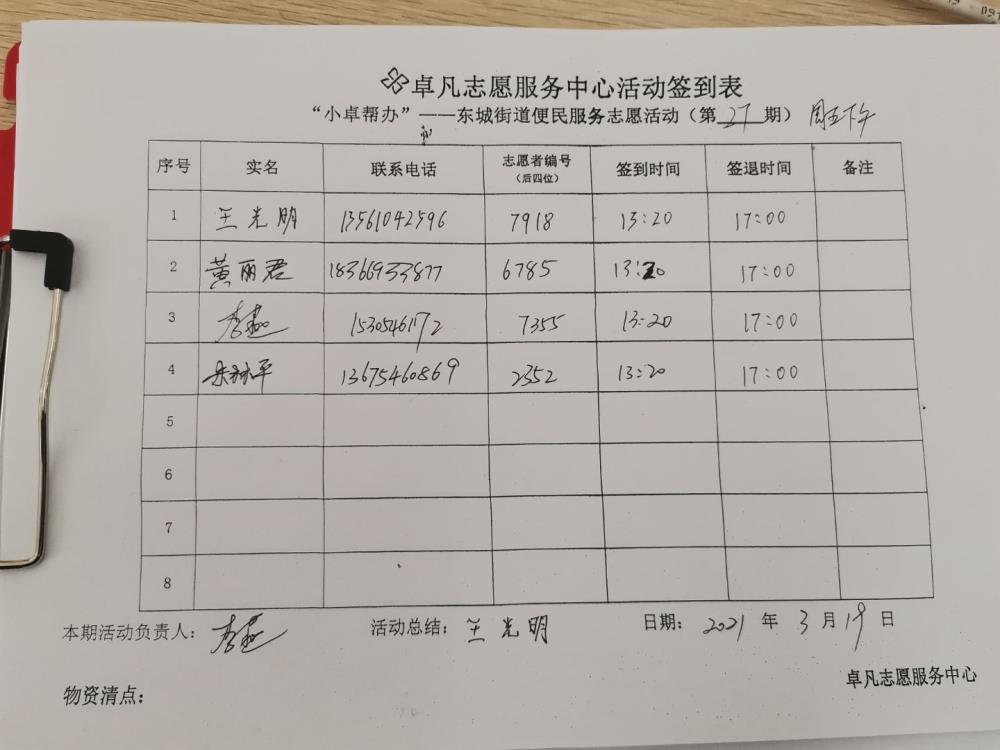 卓凡志愿服务中心活动签到表
“小卓帮办”——东城街道便民服务志愿活动（第27期） 周五下午
序号 实名 联系电话 志愿者编号（后四位） 签到时间 签退时间 备注
1 王光明 13561042596 7918 13:20 17:00
2 黄丽君 18366933877 6785 13:20 17:00
3 李 15305461172 7355 13:20 17:00
4 平 13675460869 2352 13:20 17:00
5
6
7
8
本期活动负责人： 李 活动总结： 王光明 日期： 2021 年 3 月 19 日
卓凡志愿服务中心
物资清点：